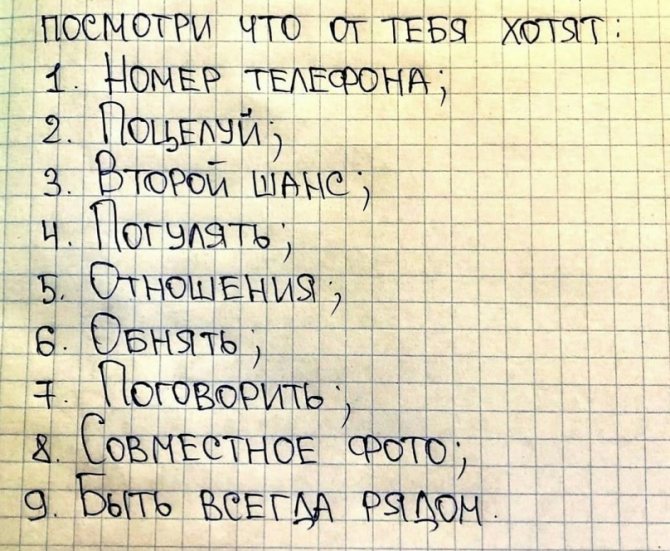 ПОСМОТРИ ЧТО ОТ ТЕБЯ ХОТЯТ:
1. НОМЕР ТЕЛЕФОНА;
2. ПОЦЕЛУЙ;
3. ВТОРОЙ ШАНС;
4. ПОГУЛЯТЬ;
5. ОТНОШЕНИЯ;
6. ОБНЯТЬ;
7. ПОГОВОРИТЬ;
8. СОВМЕСТНОЕ ФОТО;
9. БЫТЬ ВСЕГДА РЯДОМ.